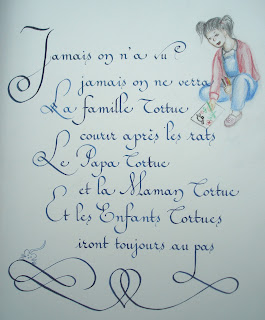 Jamais on n'a vu
jamais on ne verra
La famille Tortue
courir après les rats
Le Papa Tortue
et la Maman Tortue
Et les Enfants Tortues
iront toujours au pas